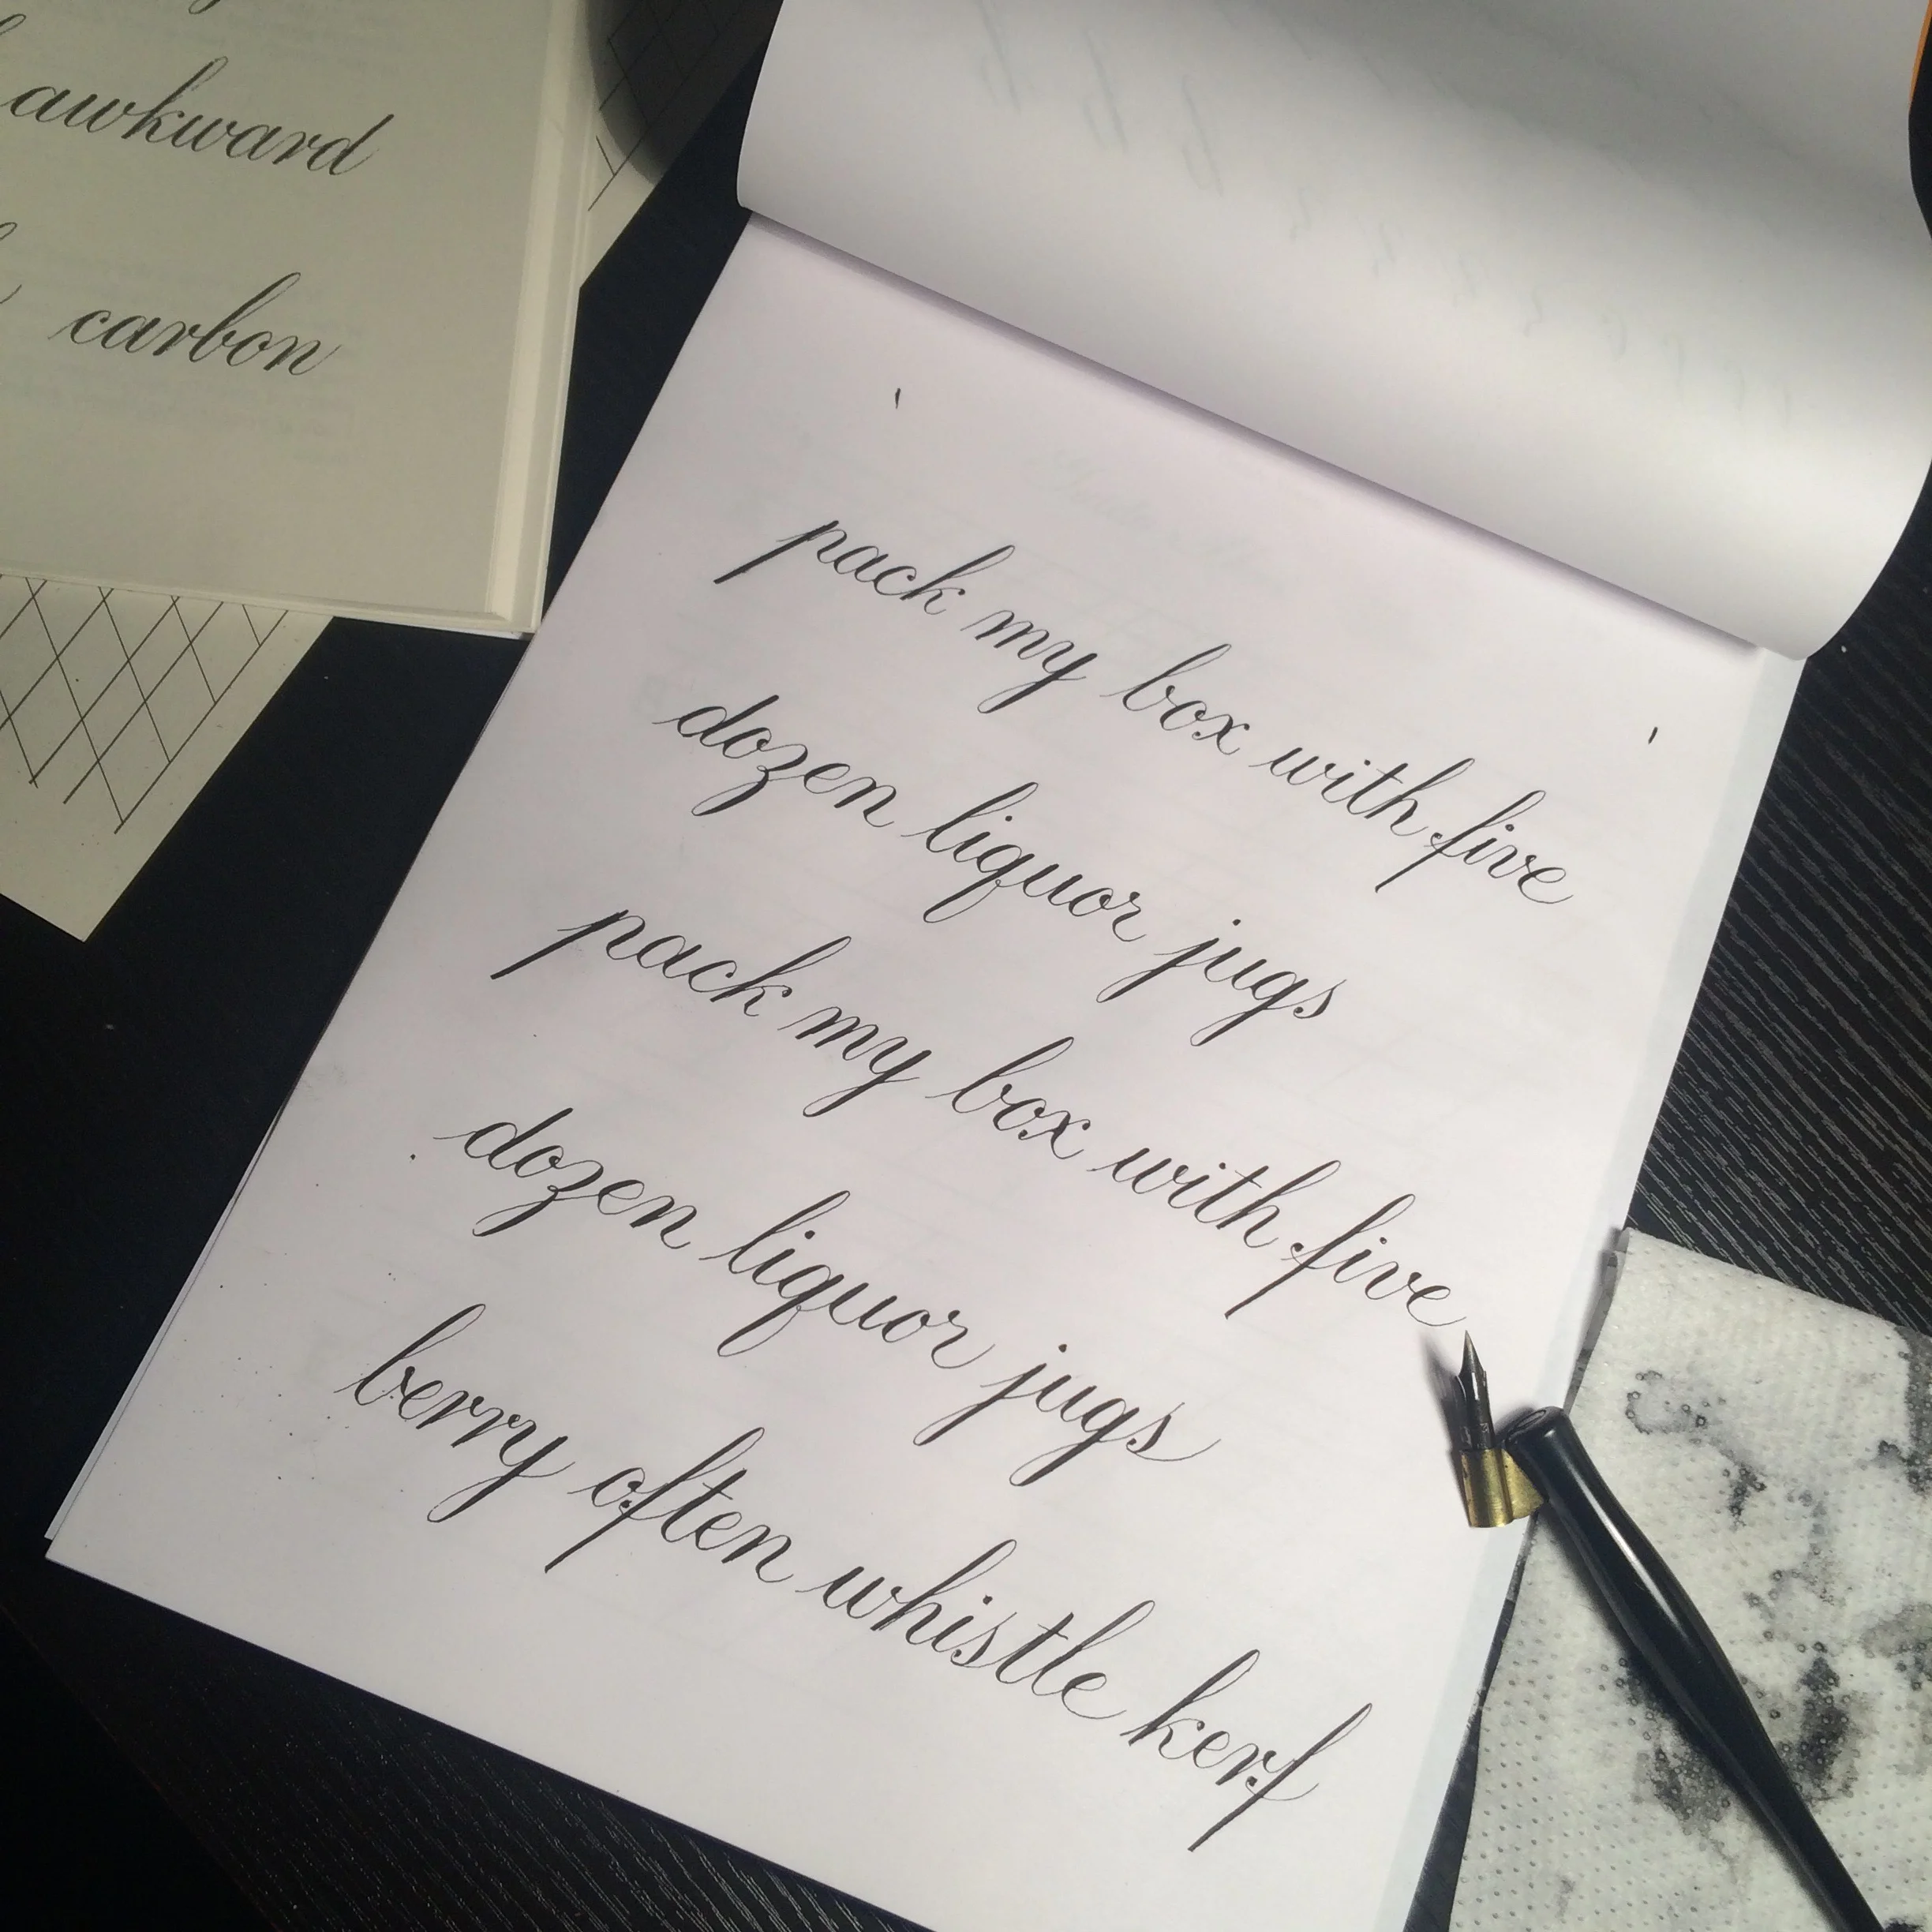 awkward
carbon
pack my box with five
dozen liquor jugs
pack my box with five
dozen liquor jugs
berry often whistle kerf